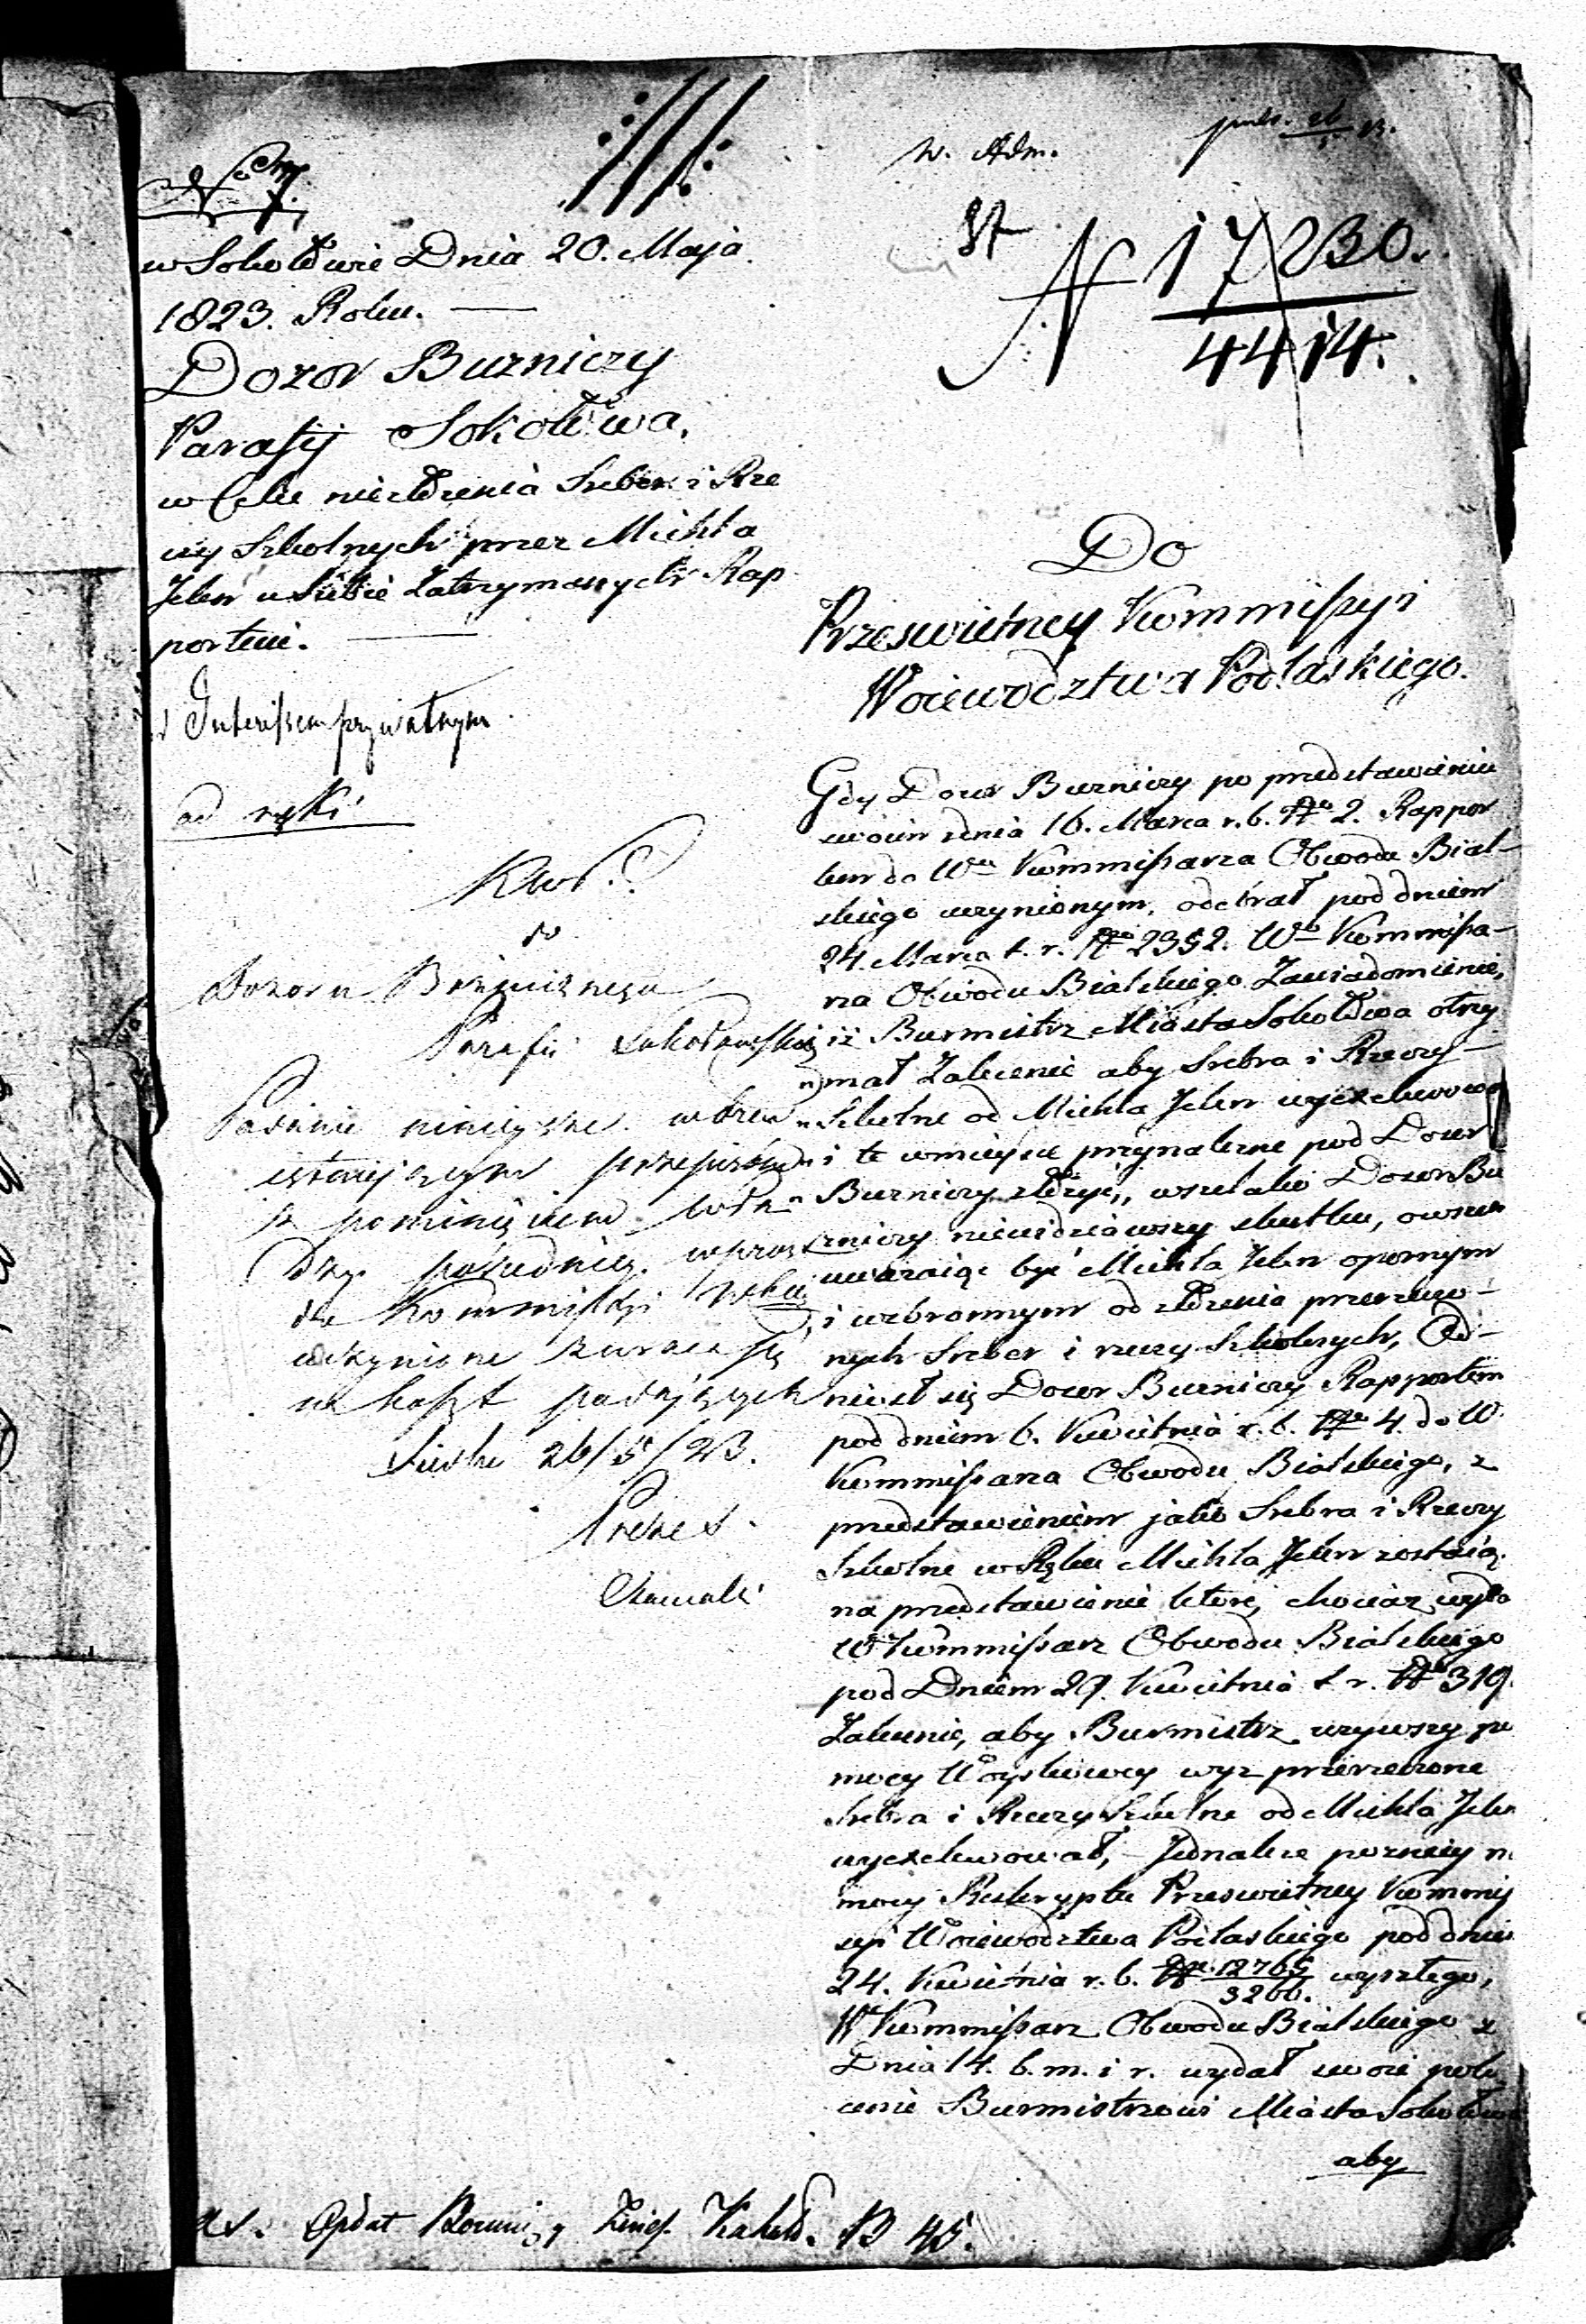 No 7.
w Sokołowie Dnia 20. Maja
1823. Roku.
Dozor Bużniczy
Parafij Sokołowa,
w Celu niezłożenia Sreber i Rze
czy Szkolnych przez Michla
Jeleń u Siebie Zatrzymanych Rap
portuie.
Interissem prywatnym
ad ręki
w. Adm.
N 17230.
4414.
Do
Prześwietney Kommissyi
Woiewodztwa Podlaskiego.
Gdy Dozor Bużniczy po przedstawieniu
swoim z dnia 16. Marca r. b. No 2. Rappor
tem do Wo Kommissarza Obwodu Bial-
skiego uczynionym, odebrał pod dniem
24. Marca t. r. No 2352. Wo Kommissa-
rza Obwodu Bialskiego Zawiadomienie,
iż Burmistrz Miasta Sokołowa otrzy
mał Zalecenie aby Srebra i Rzeczy
Szkolne od Michla Jeleń wyexekwował
i te w mieysce przynależne pod Dozor
Bużniczy złożyć, wszelako Dozor Bu
żniczy niewidziawszy skutku, owszem
uważaiąc być Michla Jeleń opornym
i wzbronnym od złożenia przerzeczo-
nych Sreber i rzeczy Szkolnych, Od-
niosł się Dozor Bużniczy Rapportem
pod dniem 6. Kwietnia r. b. No 4. do W.
Kommissarza Obwodu Bialskiego, z
przedstawieniem jako Srebra i Rzeczy
Szkolne w Ręku Michla Jeleń zostaią.
na przedstawienie ktore, chociaż wyda
W Kommissarz Obwodu Bialskiego
pod Dniem 29. Kwietnia t. r. No 319.
Zalecenie, aby Burmistrz używszy po
mocy Woyskowey wyż przerzeczone
Srebra i Rzeczy Szkolne od Michla Jeleń
wyexekwował, Jednakże pozniey
mocy Reskryptu Prześwietney Kommis
syi Woiewodztwa Podlaskiego pod dniem
24. Kwietnia r. b. No 12765/3266. wyszłego,
W Kommissarz Obwodu Bialskiego z
Dnia 14. b. m. i r. wydał swoie pole
cenie Burmistrzowi Miasta Sokołowa
aby
do
Dozoru Bożniczego
Parafii Sokołowskiej
Podanie niniejsze wbrew
istniejącym przepisom
z pominięciem
do Kommissyi
uczynione zwraca się
na koszt podających
Siedlce 26/5/23.
Prezes
B 45.